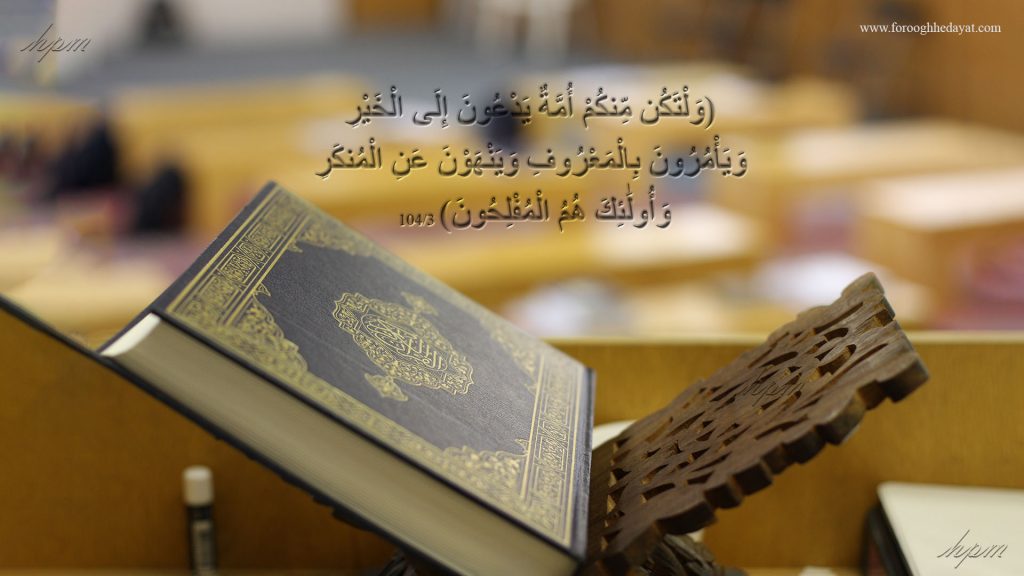 hpm
www.forooghhedayat.com
(وَلْتَكُن مِّنكُمْ أُمَّةٌ يَدْعُونَ إِلَى الْخَيْرِ
وَيَأْمُرُونَ بِالْمَعْرُوفِ وَيَنْهَوْنَ عَنِ الْمُنكَرِ
وَأُولَٰئِكَ هُمُ الْمُفْلِحُونَ) 104/3
hpm
hpm